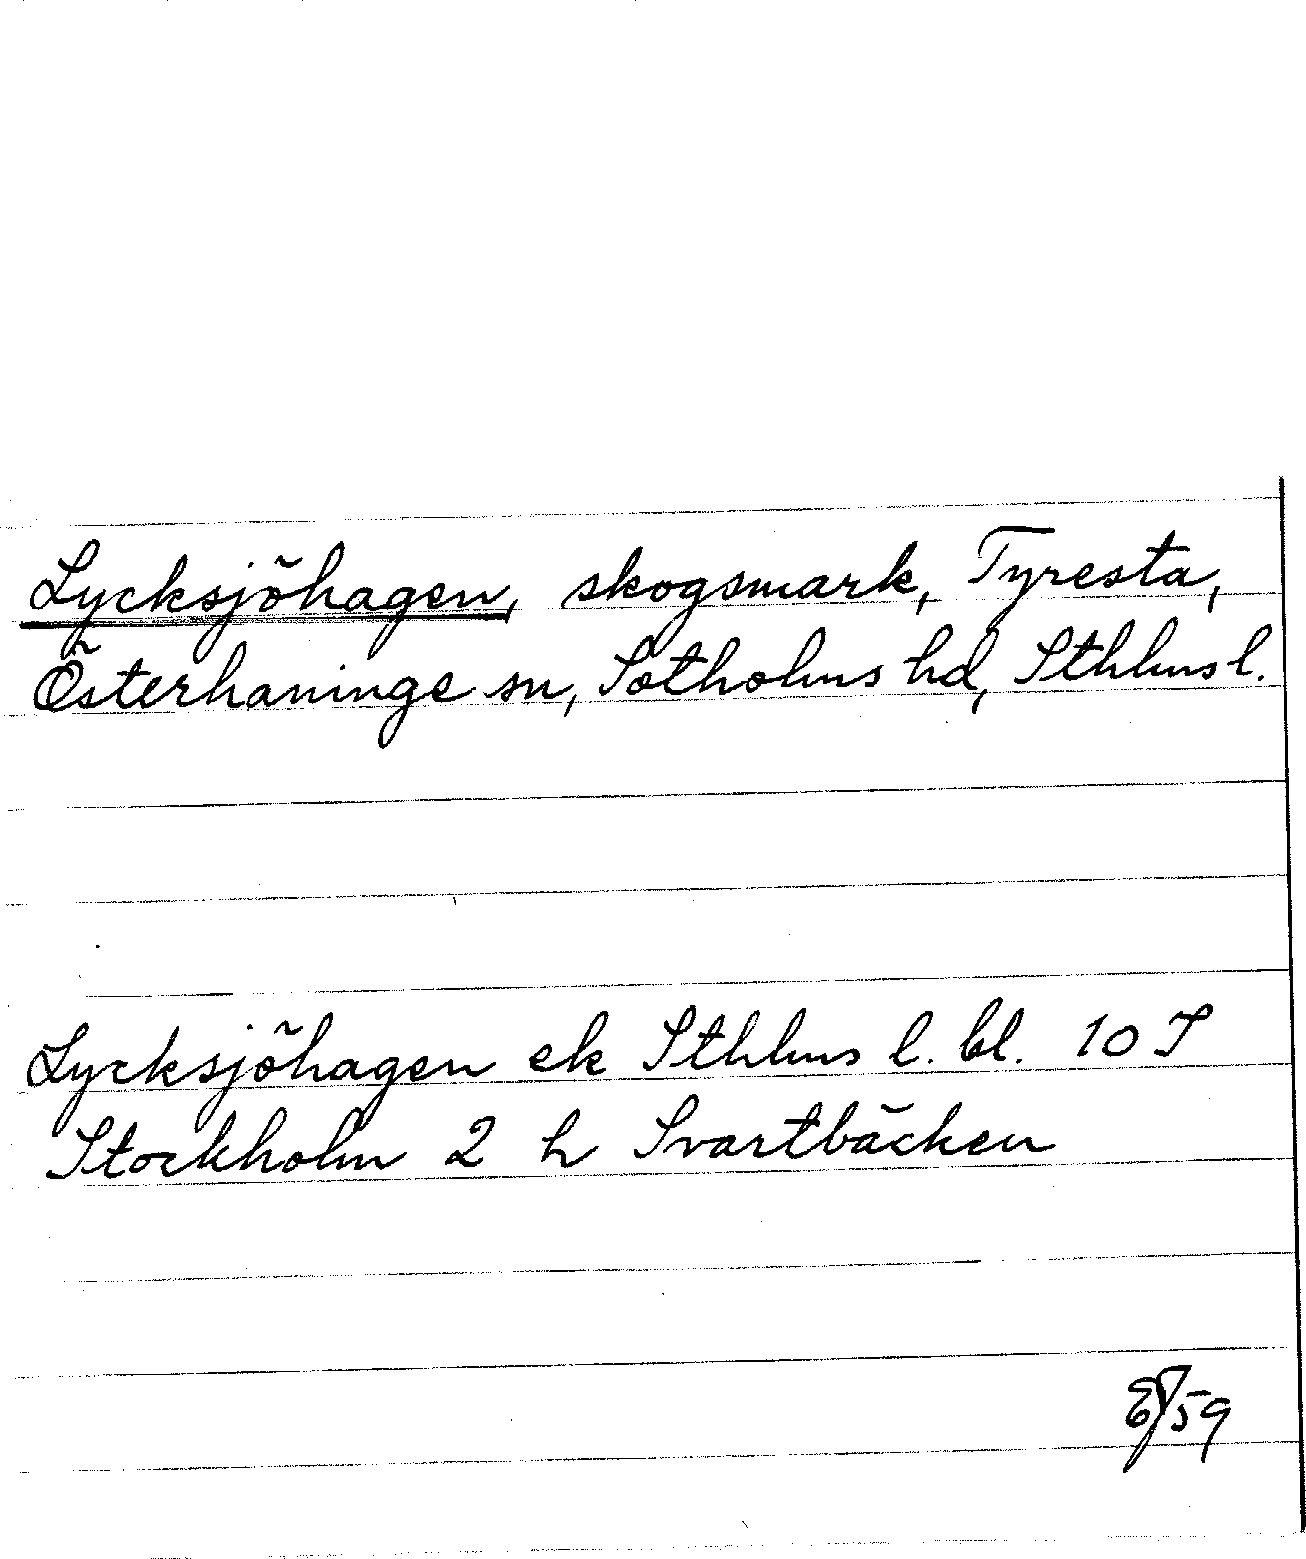 Lycksjöhagen, skogsmark, Tyresta,
Österhaninge sn, Sotholms hd, Sthlms l.
Lycksjöhagen ek Sthlms l. bl. 10 I
Stockholm 2 h Svartbäcken
59